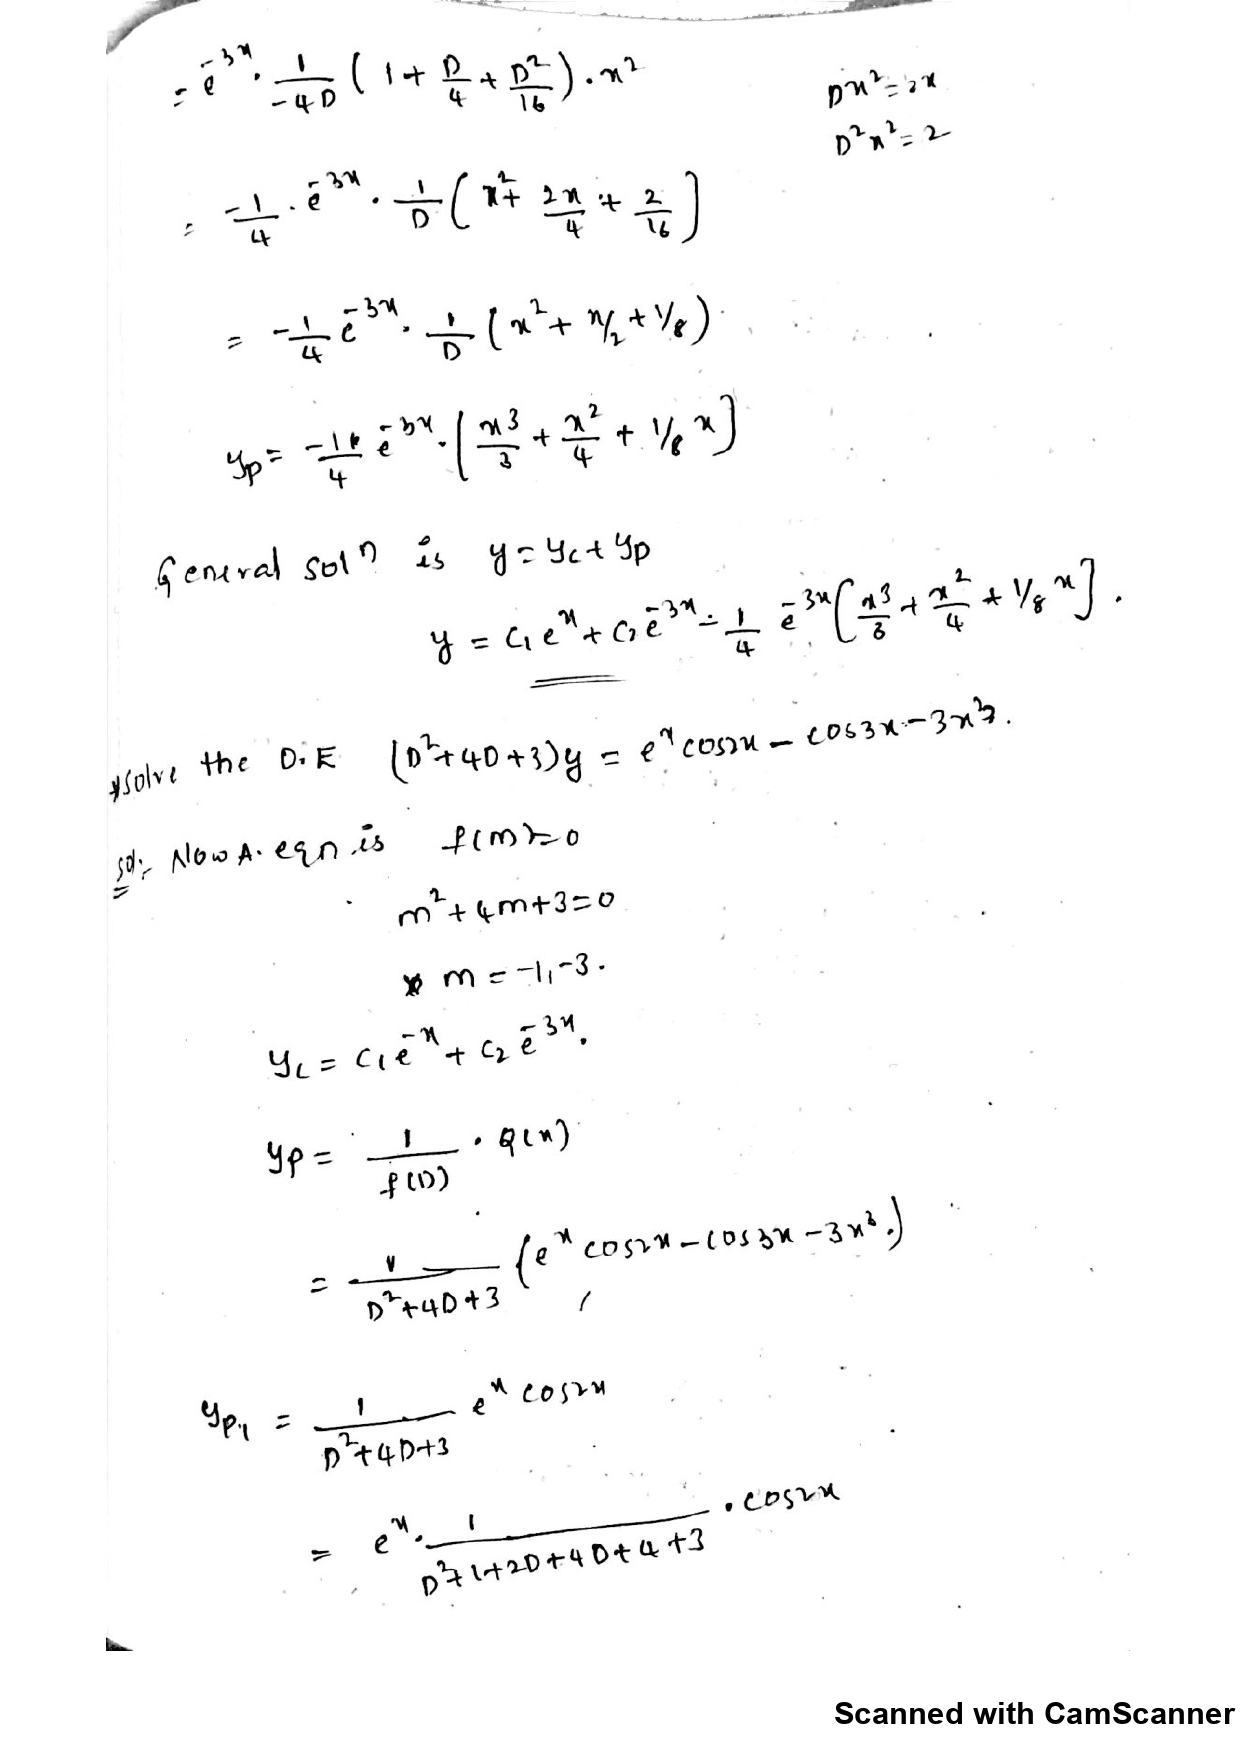 = e^{-3x} · 1/(-4D) (1 + D/4 + D²/16) · x²
Dx² = 2x
D²x² = 2
= -1/4 · e^{-3x} · 1/D (x² + 2x/4 + 2/16]
= -1/4 e^{-3x} · 1/D (x² + x/2 + 1/8)
yp = -1/4 e^{-3x} · [x³/3 + x²/4 + 1/8 x]
General solⁿ is y = yc + yp
y = c₁eˣ + c₂e^{-3x} - 1/4 e^{-3x} [x³/3 + x²/4 + 1/8 x].
*Solve the D.E (D²+4D+3)y = eˣ cos2x - cos3x - 3x³.
Sol:- Now A. eqn is f(m)=0
m²+4m+3=0
m = -1,-3.
yc = c₁e^{-x} + c₂e^{-3x}.
yp = 1/f(D) · Q(x)
= 1/(D²+4D+3) (eˣ cos2x - cos3x - 3x³.)
yp₁ = 1/(D²+4D+3) eˣ cos2x
= eˣ · 1/(D²+1+2D+4D+4+3) · cos2x
Scanned with CamScanner